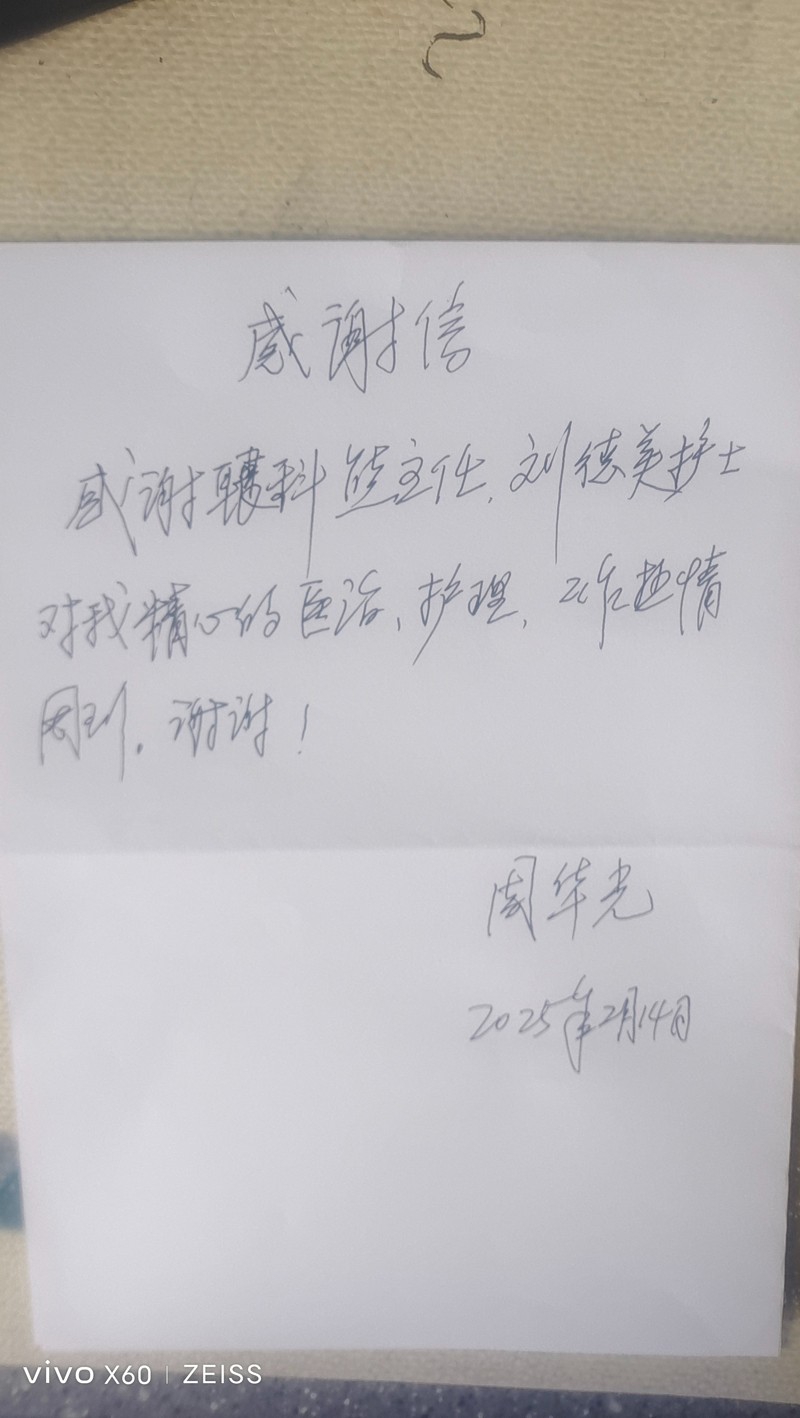 感谢信
感谢 科熊主任,刘德美护士
对我精心的医治、护理,工作热情
周到。谢谢!
周华光
2025年2月14日
vivo X60 | ZEISS